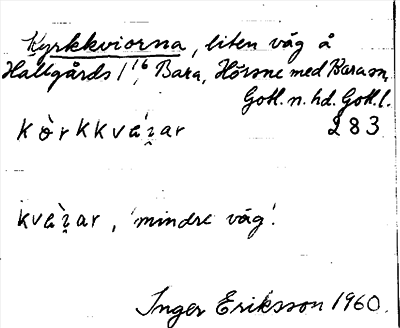 Kyrkkviorna, liten väg å
Hallgårds 1/16, Bara, Hörsne med Bara sn,
Gotl. n. hd. Gotl. l.
283
kvä̀i̯ar, 'mindre väg'.
Inger Eriksson 1960.